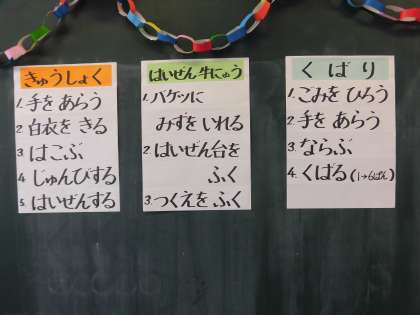 きゅうしょく
1. 手を あらう
2. 白衣を きる
3. はこぶ
4. じゅんびする
5. はいぜんする
はいぜん 牛にゅう
1. バケツに
みずを いれる
2. はいぜん台を
ふく
3. つくえを ふく
くばり
1. ごみを ひろう
2. 手を あらう
3. ならぶ
4. くばる(1→6ぱん)